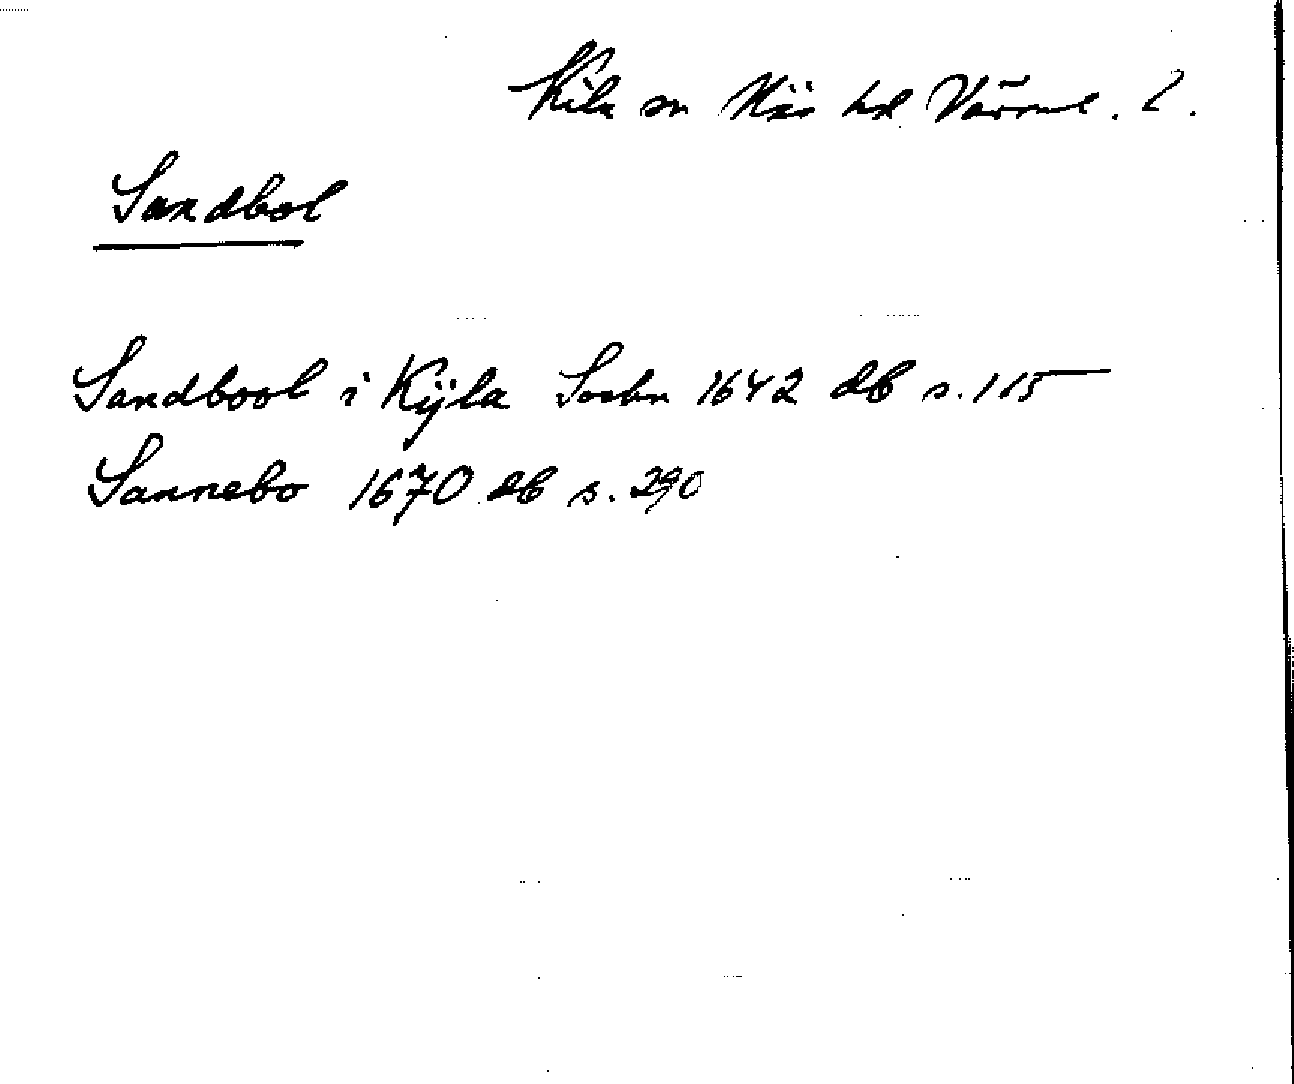 Kila sn Näs hd Värml. l.
Sandbol
Sandbool i Kÿla Sochn 1642 db s. 115
Sannebo 1670 db s. 290